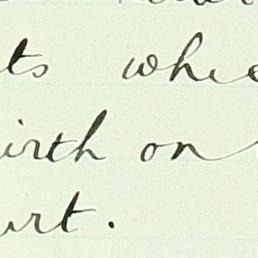 ts whe
irth on
urt.